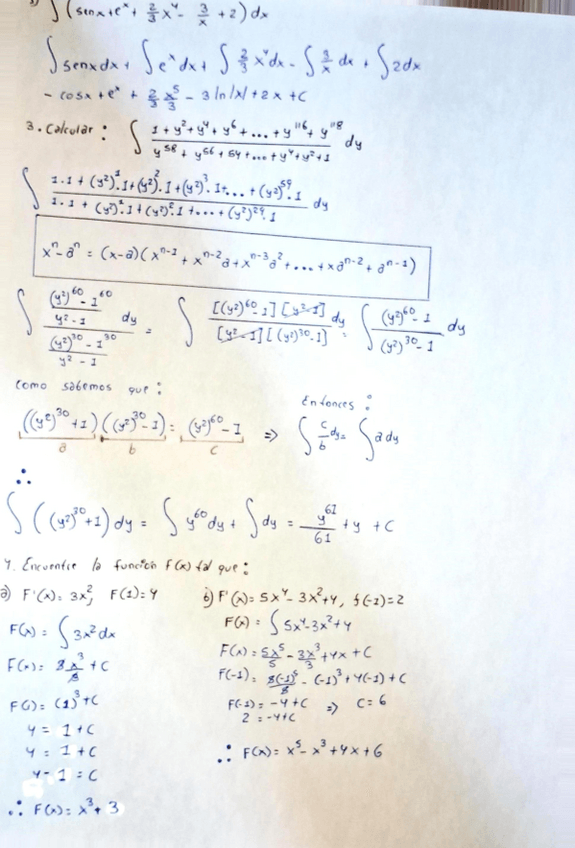 ∫(senx+e^x+ 2/3 x^4 - 3/x +2)dx
∫senxdx+ ∫e^x dx+ ∫ 2/3 x^4 dx- ∫ 3/x dx + ∫2dx
- cosx +e^x + 2/3 x^5/5 - 3 ln|x| +2x +C
3. Calcular: ∫ (1+y^2+y^4+y^6+...+y^116+y^118)/(y^58+y^56+54+...+y^4+y^2+1) dy
∫ (1.1+(y^2)^1.1+(y^2)^2.1+(y^2)^3.1+...+(y^2)^59.1)/(1.1+(y^2)^1.1+(y^2)^2.1+...+(y^2)^29.1) dy
x^n-a^n = (x-a)(x^n-1+x^n-2a+x^n-3a^2+...+xa^n-2+a^n-1)
∫ (((y^2)^60-1^60)/(y^2-1))/(((y^2)^30-1^30)/(y^2-1)) dy = ∫ ([(y^2)^60-1][y^2-1])/([y^2-1][(y^2)^30-1]) dy = ∫ ((y^2)^60-1)/((y^2)^30-1) dy
como sabemos que:
Entonces:
((y^2)^30+1)((y^2)^30-1)=(y^2)^60-1 ⇒ ∫ c/b dy= ∫ady
a b c
∴
∫((y^2)^30+1)dy = ∫y^60dy+ ∫dy = y^61/61 +y +C
4. Encuentre la función F(x) tal que:
a) F'(x)=3x^2, F(1)=4
F(x)= ∫3x^2dx
F(x)= 3x^3/3 +C
F(1)= (1)^3+C
4 = 1+C
4 = 1+C
4-1 =C
∴ F(x)=x^3+3
b) F'(x)=5x^4-3x^2+4, f(-1)=2
F(x)= ∫5x^4-3x^2+4
F(x)= 5x^5/5 - 3x^3/3 +4x+C
F(-1)= 5(-1)^5/5 - (-1)^3+4(-1)+C
F(-1)= -4+C ⇒ C=6
2 =-4+C
∴ F(x)= x^5-x^3+4x+6